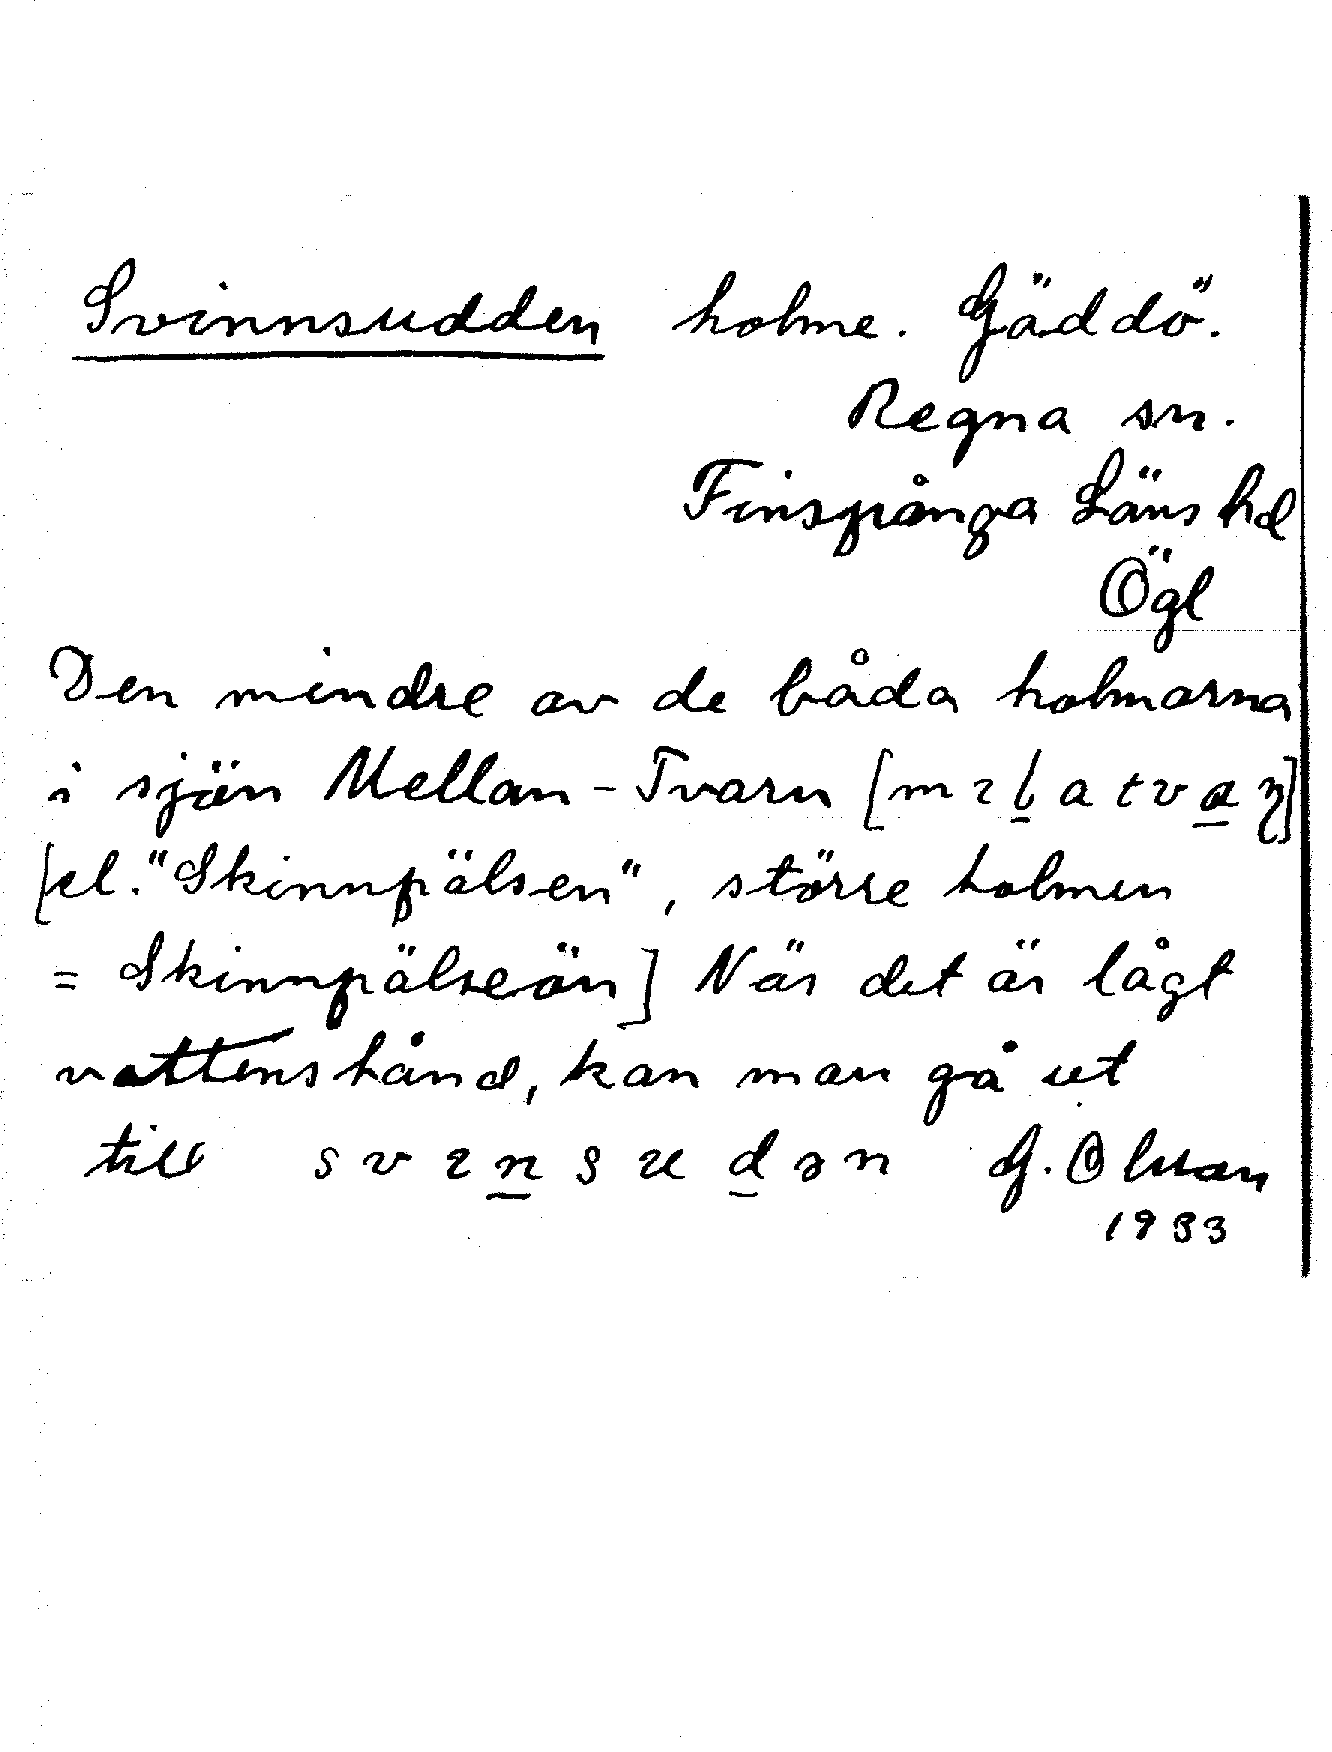 Svinnsudden holme. Gäddö.
Regna sn.
Finspånga Läns hd
Ögl
Den mindre av de båda holmarna
i sjön Mellan-Tvarn [mɪḻatva̱ɳ]
[el. "Skinnpälsen", större holmen
= Skinnpälseön] När det är lågt
vattenstånd, kan man gå ut
till svɪṉsuḏən G. Olsson
1933